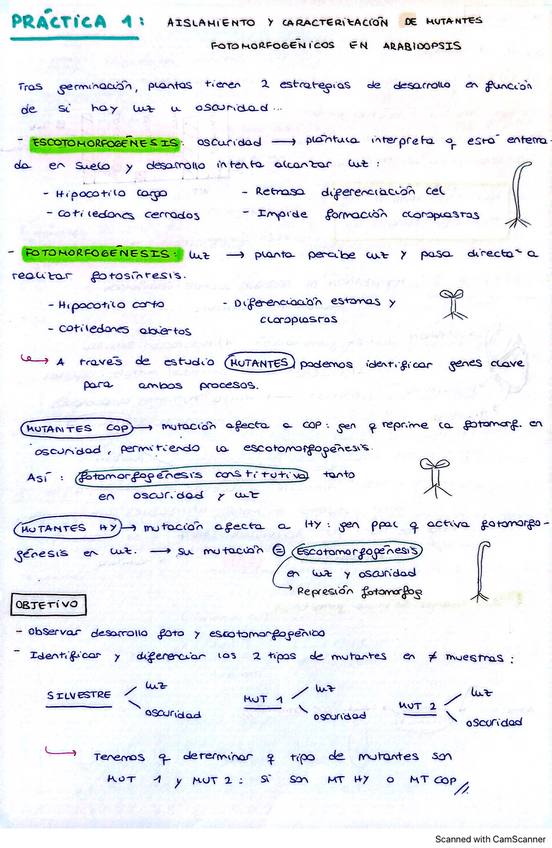 PRÁCTICA 1: AISLAMIENTO Y CARACTERIZACIÓN DE MUTANTES
FOTOMORFOGÉNICOS EN ARABIDOPSIS
Tras germinación, plantas tienen 2 estrategias de desarrollo en función
de si hay luz u oscuridad...
- ESCOTOMORFOGÉNESIS: oscuridad → plántula interpreta q está enterra-
da en suelo y desarrollo intenta alcanzar luz:
- Hipocotilo largo - Retrasa diferenciación cel
- Cotiledones cerrados - Impide formación cloroplastos
- FOTOMORFOGÉNESIS: luz → planta percibe luz y pasa directa a
realizar fotosíntesis.
- Hipocotilo corto - Diferenciación estomas y
cloroplastos
- Cotiledones abiertos
↪ A través de estudio MUTANTES podemos identificar genes clave
para ambos procesos.
MUTANTES COP → mutación afecta a COP: gen q reprime la fotomorf. en
oscuridad, permitiendo la escotomorfogénesis.
Así: fotomorfogénesis constitutiva tanto
en oscuridad y luz
MUTANTES HY → mutación afecta a HY: gen ppal q activa fotomorfo-
génesis en luz. → su mutación = Escotomorfogénesis
en luz y oscuridad
→ Represión fotomorfog
OBJETIVO
- Observar desarrollo foto y escotomorfogénico
- Identificar y diferenciar los 2 tipos de mutantes en ≠ muestras:
SILVESTRE luz oscuridad MUT 1 luz oscuridad MUT 2 luz oscuridad
↪ Tenemos q determinar q tipo de mutantes son
MUT 1 y MUT 2: si son MT HY o MT COP //
Scanned with CamScanner